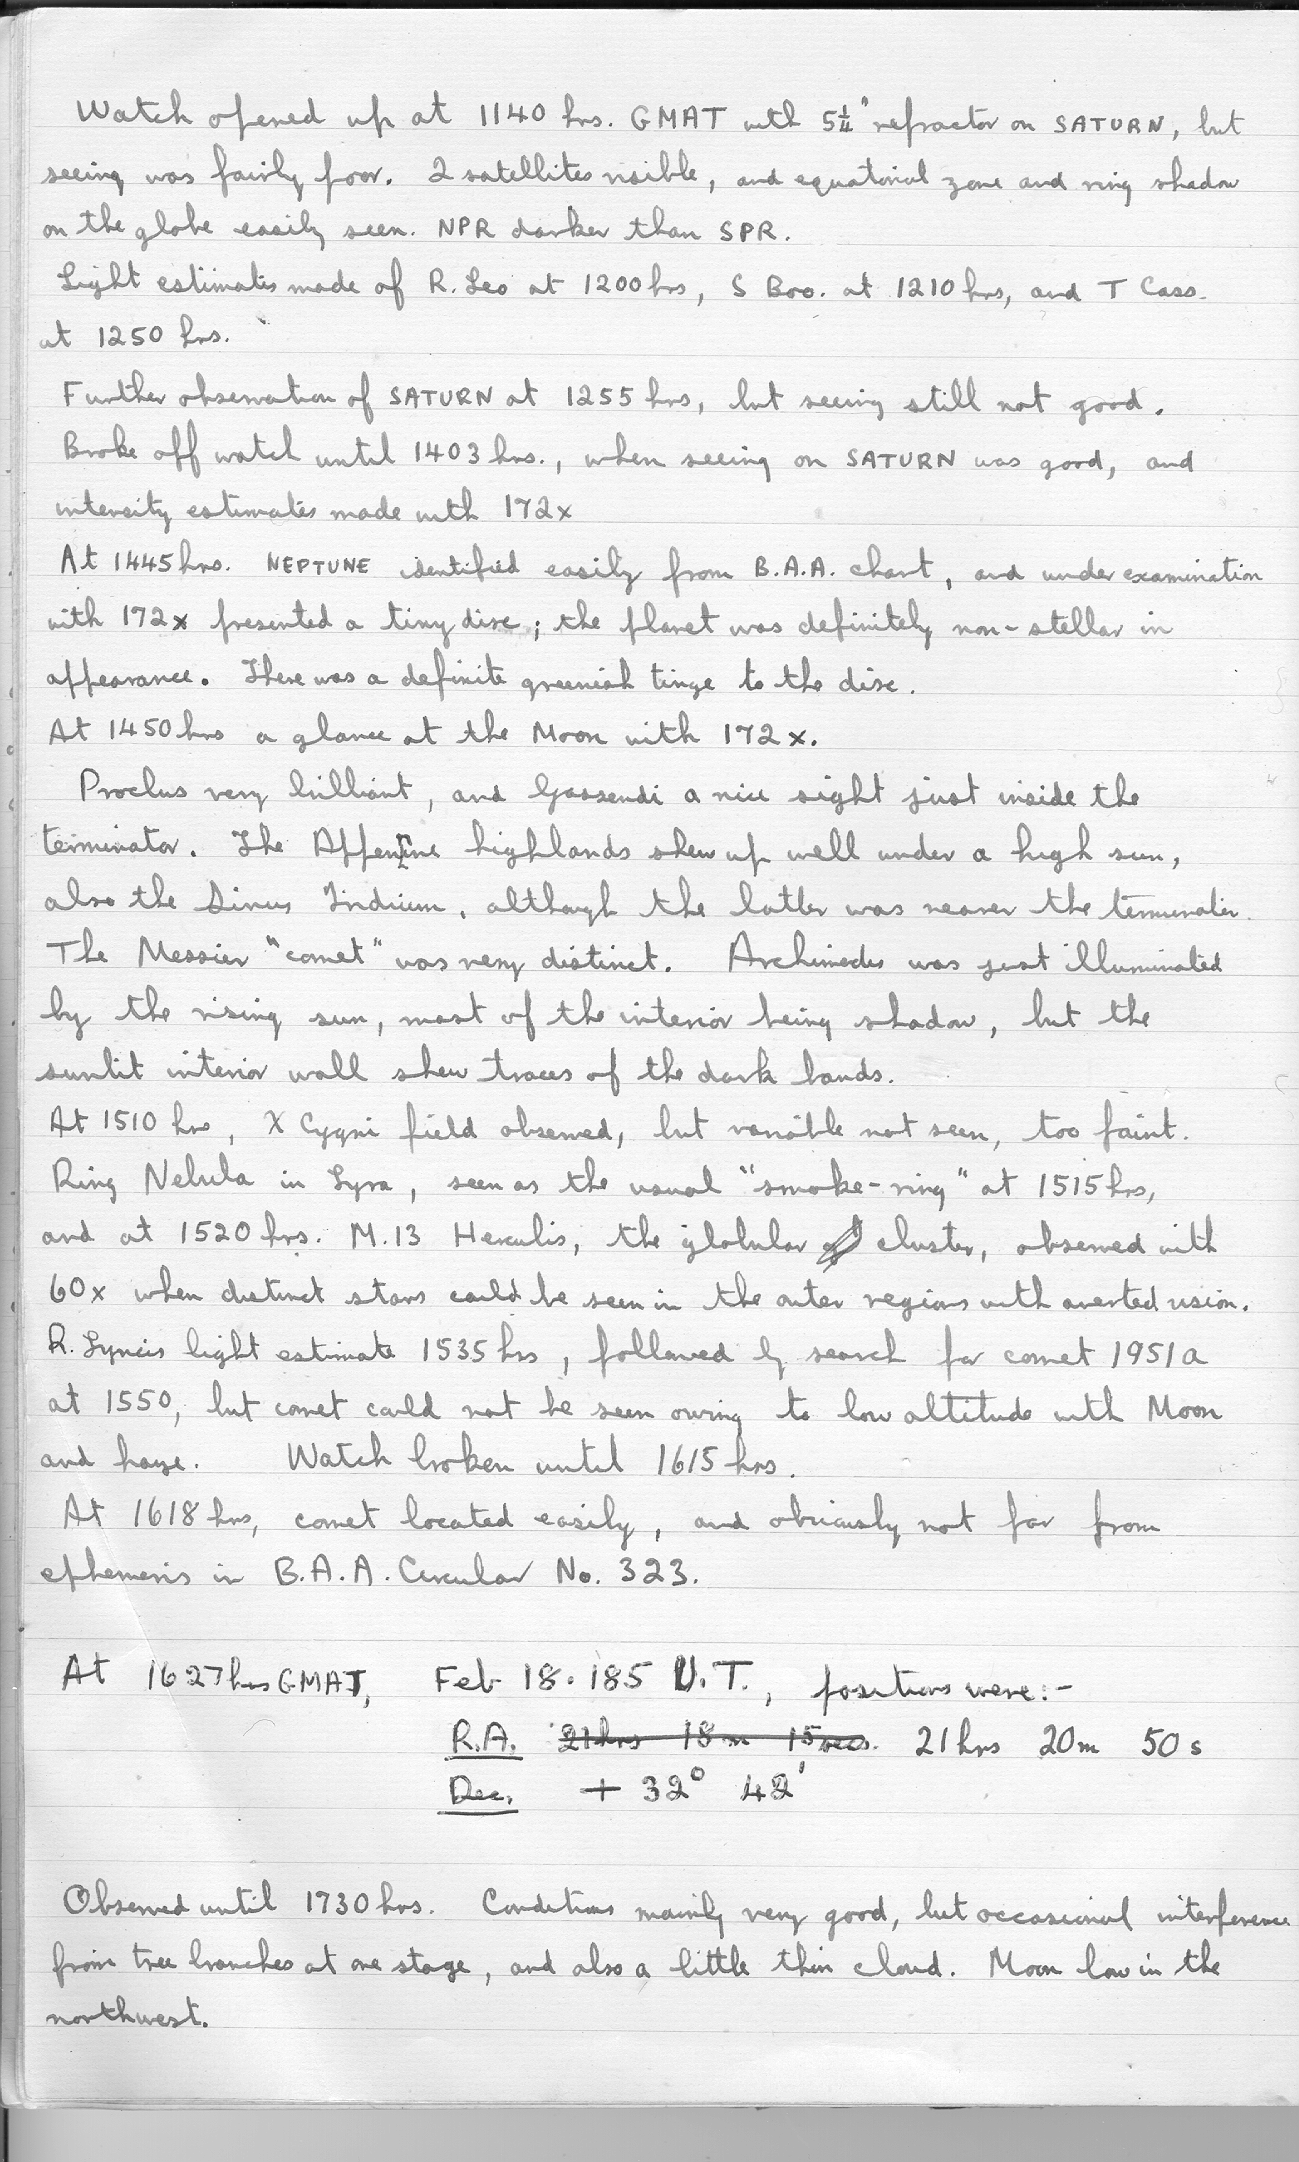 Watch opened up at 1140 hrs. GMAT with 5¼" refractor on SATURN, but
seeing was fairly poor. 2 satellites visible, and equatorial zone and ring shadow
on the globe easily seen. NPR darker than SPR.
Light estimates made of R. Leo at 1200 hrs, S Boo. at 1210 hrs, and T Cass.
at 1250 hrs.
Further observation of SATURN at 1255 hrs, but seeing still not good.
Broke off watch until 1403 hrs., when seeing on SATURN was good, and
intensity estimates made with 172x
At 1445 hrs. NEPTUNE identified easily from B.A.A. chart, and under examination
with 172x presented a tiny disc; the planet was definitely non-stellar in
appearance. There was a definite greenish tinge to the disc.
At 1450 hrs a glance at the Moon with 172x.
Proclus very brilliant, and Gassendi a nice sight just inside the
terminator. The Appenine highlands shew up well under a high sun,
also the Sinus Iridium, although the latter was nearer the terminator.
The Messier "comet" was very distinct. Archimedes was just illuminated
by the rising sun, most of the interior being shadow, but the
sunlit interior wall shew traces of the dark bands.
At 1510 hrs, X Cygni field observed, but variable not seen, too faint.
Ring Nebula in Lyra, seen as the usual "smoke-ring" at 1515 hrs,
and at 1520 hrs. M.13 Herculis, the globular cluster, observed with
60x when distinct stars could be seen in the outer regions with averted vision.
R. Lyncis light estimate 1535 hrs, followed by search for comet 1951a
at 1550, but comet could not be seen owing to low altitude with Moon
and haze. Watch broken until 1615 hrs.
At 1618 hrs, comet located easily, and obviously not far from
ephemeris in B.A.A. Circular No. 323.
At 1627 hrs GMAT, Feb 18.185 U.T., positions were:-
R.A. 21hrs 18m 15secs. 21hrs 20m 50s
Dec. + 32° 42'
Observed until 1730 hrs. Conditions mainly very good, but occasional interference
from tree branches at one stage, and also a little thin cloud. Moon low in the
northwest.